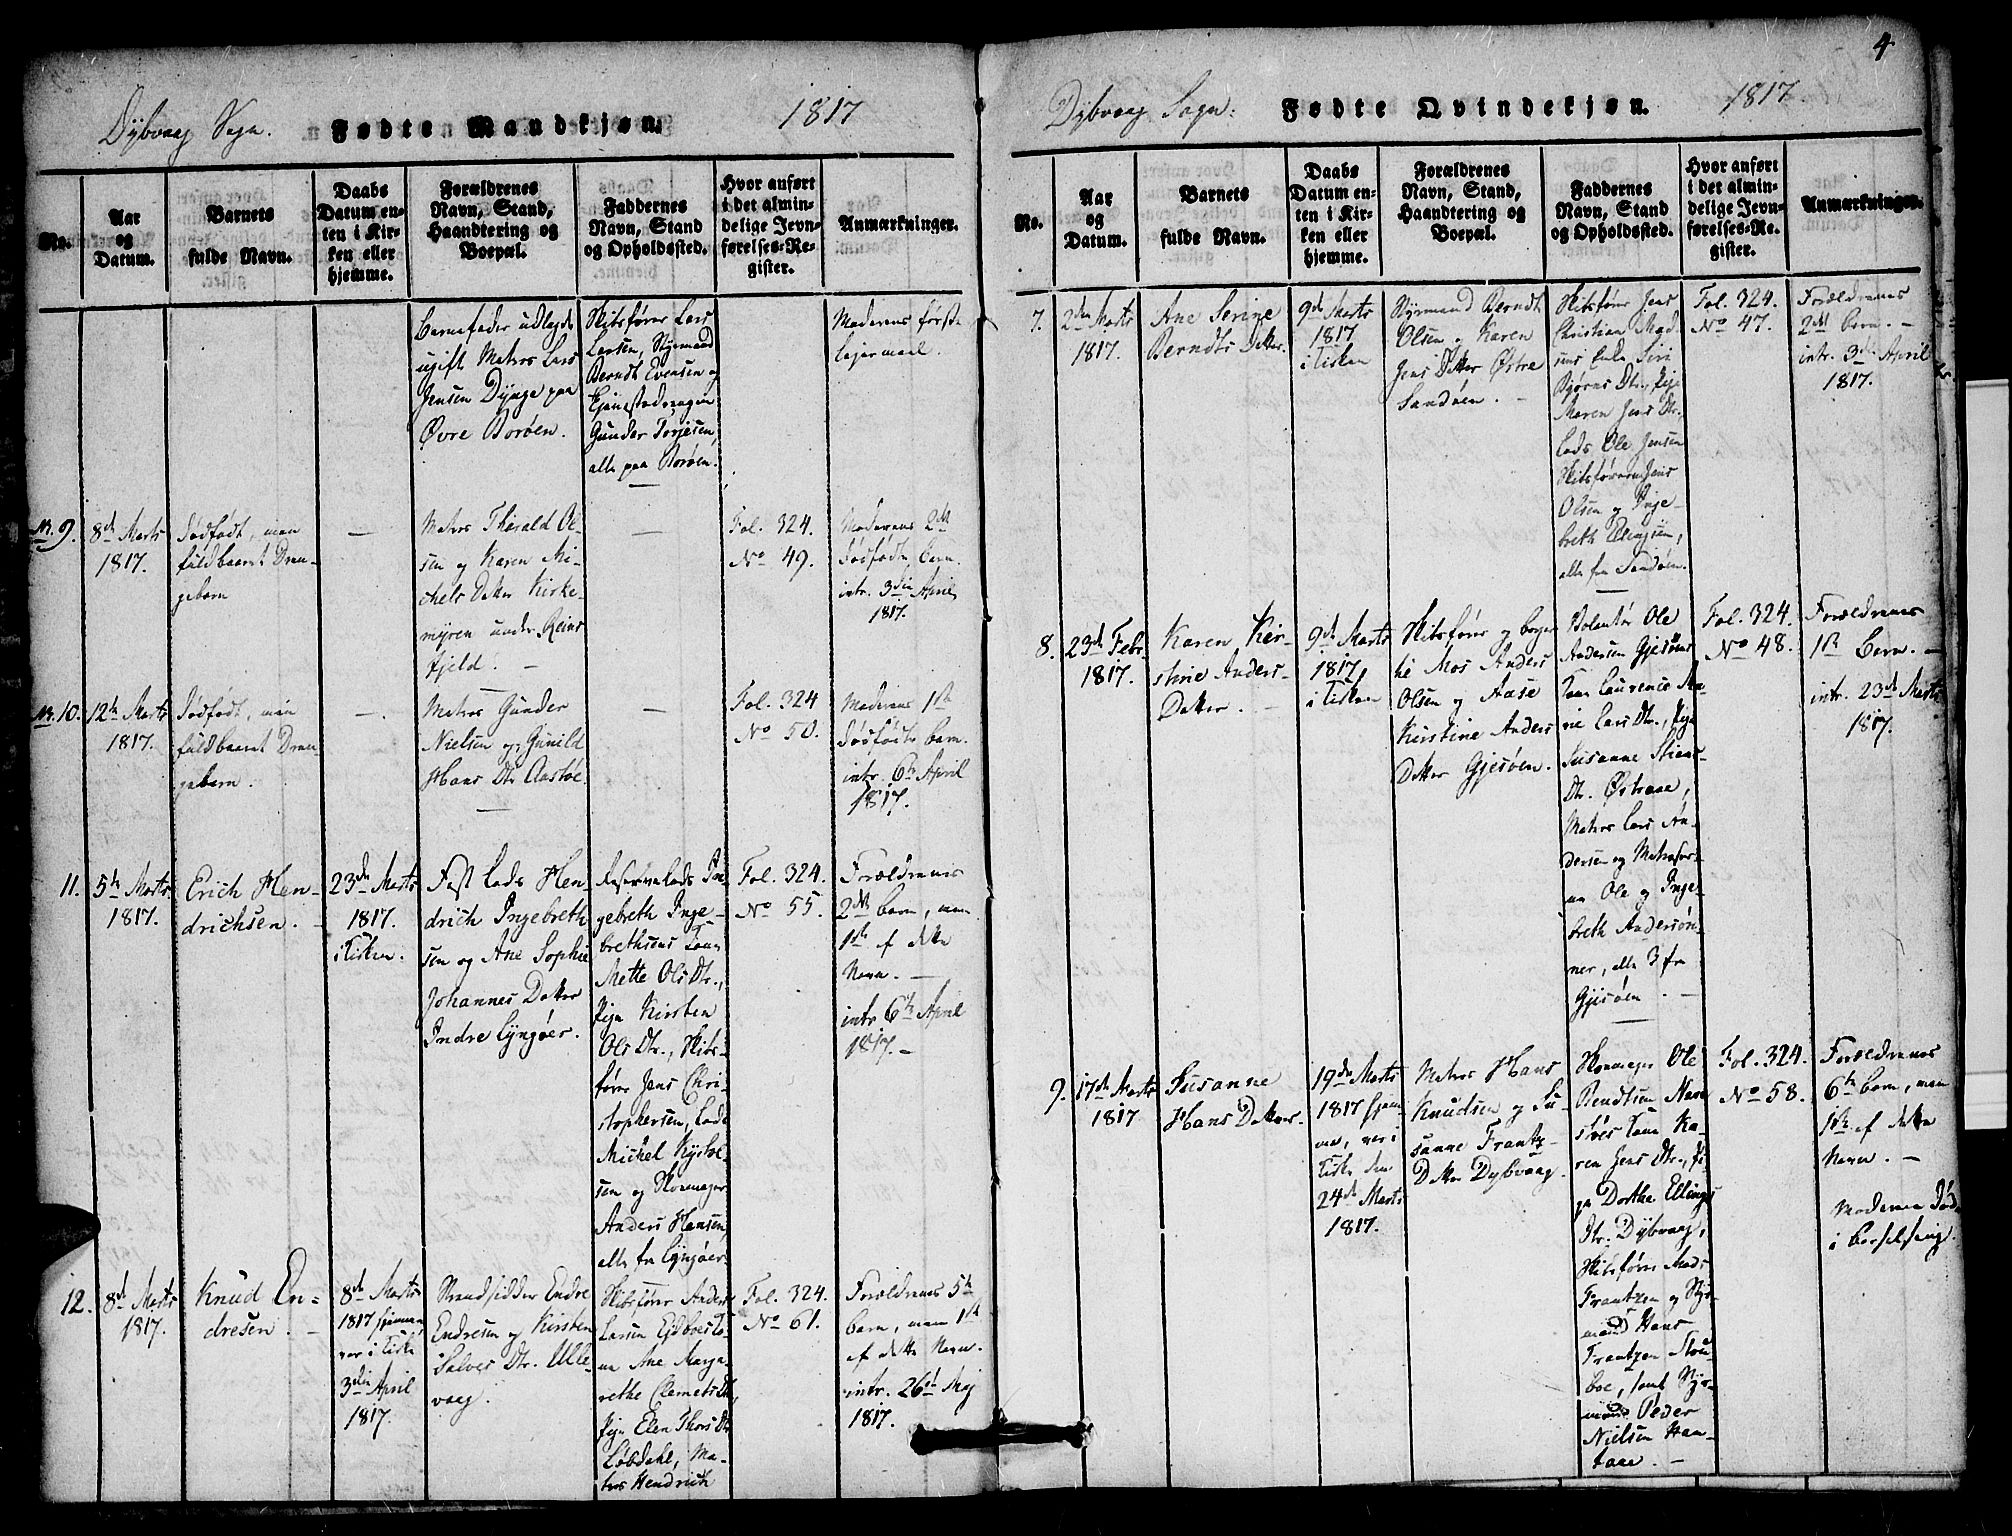 Dybvaag Sogn.
Fødte Mandkjøn.
1817
No.
Aar
og
Datum.
Barnets
fulde Navn.
Daabs
Datum en-
ten i Kir-
ken eller
hjemme.
Forældrenes
Navn, Stand,
Haandtering og
Boepæl.
Faddernes
Navn, Stand
og Opholdssted.
Hvor anført
i det almin-
delige Jevn-
førelses-Re-
gister.
Anmærkninger.
Barnefader udlagdt
ugift Matros Lars
Jensen Dynge paa
Øvre Borøen.
Skibsfører Lars
Larsen, Styrmand
Berndt Evensen og
Gunder Torjesen,
alle paa Borøen.
Moderens første
Lejermaal.
No. 9.
8de Marts
1817.
Dødfødt, men
fuldbaaret Dren-
gebarn
—
Matros Tharald Ol-
sen og Karen Mi-
chels Datter Kirke-
myren under Reins-
fjeld. —
—
Fol. 324.
No 49.
Moderens 2det
dødfødte Barn.
intr. 3die April
1817.
No. 10.
12te Marts
1817.
Dødfødt, men
fuldbaaret Dren-
gebarn.
—
Matros Gunder
Nielsen og Gunild
Hans Dtr. Aastøe.
—
Fol. 324
No 50.
Moderens 1ste
dødfødte barn.
intr. 6te April
1817.
11.
5te Marts
1817.
Erich Hen-
drichsen. —
23de Marts
1817.
i Kirken.
Fast Lods Hen-
drich Ingebreth
sen og Ane Sophie
Johannes Datter
Indre Lyngøer.
Reservelods In-
gebreth Inge-
brethsens Kone
Mette Ols Dtr.,
Pige Kirsten
Ols Dtr., Skibs-
fører Jens Chri
stophersen, Lods
Michel
sen og Skomager
Anders Hansen,
alle fra Lyngøer.
Fol. 324.
No 55.
Forældrenes
2det barn, men
1ste af dette
Navn. —
intr. 6te April
1817. —
12.
8de Marts
1817.
Knud En-
dresen. —
8de Marts
1817 hjemme,
var i Kirke
3die April
1817.
Strandsidder Endre
Endresen og Kirsten
Salves Dtr. Ulle-
vaag.
Skibsfører Anders
Larsen Ko-
ne Ane Marga-
rethe Clemets Dtr,
Pige Elen Thors Dtr
Løbdahl, Ma-
tros Hendrich
Fol. 324.
No 61.
Forældrenes 5te
barn, men 1ste
af dette Navn.
intr. 26de Maj
1817.
4
Dybvaag Sogn.
Fødte Qvindekjøn.
1817.
No.
Aar
og
Datum.
Barnets
fulde Navn.
Daabs
Datum en-
ten i Kir-
ken eller
hjemme.
Forældrenes
Navn, Stand,
Haandtering og
Boepæl.
Faddernes
Navn, Stand
og Opholdssted.
Hvor anført
i det almin-
delige Jevn-
førelses-Re-
gister.
Anmærkninger.
7.
2den Marts
1817.
Ane Serine
Berndts Datter.
9de Marts
1817
i Kirken
Styrmand Berndt
Olsen og Karen
Jens Datter Østre
Sandøen. —
Skibsfører Jens
Christian Mad
sens Enke Siri
Bjørns Dtr., Pige
Maren Jens Dtr.
Lods Ole Jensen
Skibsføreren Jens
Olsen og Inge-
breth Ellingsen,
alle fra Sandøen.
Fol. 324.
No 47.
Forældrenes
2det barn. —
intr. 3die April
1817.
8.
23de Febr.
1817.
Karen Kir-
stine Anders-
Datter. —
9de Marts
1817,
i Kirken
Skibsfører og borger
til Mos Anders
Olsen og Aase
Kirstine Anders
Datter Gjesøen.
Volentør Ole
Andersen Gjesøens
Kone Laurence Ma-
rie Lars Dtr., Pige
Susanne Stiens-
Dtr. Østraae,
Matros Lars An-
dersen og Matroser-
ne Ole og Inge-
breth Andersøn-
ner, alle 3 fra
Gjesøen. —
Fol. 324.
No 48.
Forældrenes
1ste Barn. —
intr. 23de Marts
1817.
9.
17de Marts
1817
Susanne
Hans Datter.
19de Marts
1817 hjem-
me, var i
Kirke den
24de Marts
1817.
Matros Hans
Knudsen og Su-
sanne Frantz-
Datter Dybvaag.
Skomager Ole
Bendtsen Nave
støes Kone Ka-
ren Jens Dtr., Pi-
ge Dorthe Ellings
Dtr. Dybvaag,
Skibsfører Mads
Frantzen og Styr-
mand Hans
Frantzen
boe, samt Styr-
mand Peder
Nielsen Han-
taae. —
Fol. 324.
No 58.
Forældrenes
6te barn, men
1ste af dette
Navn. —
Moderen død
i Barselseng.